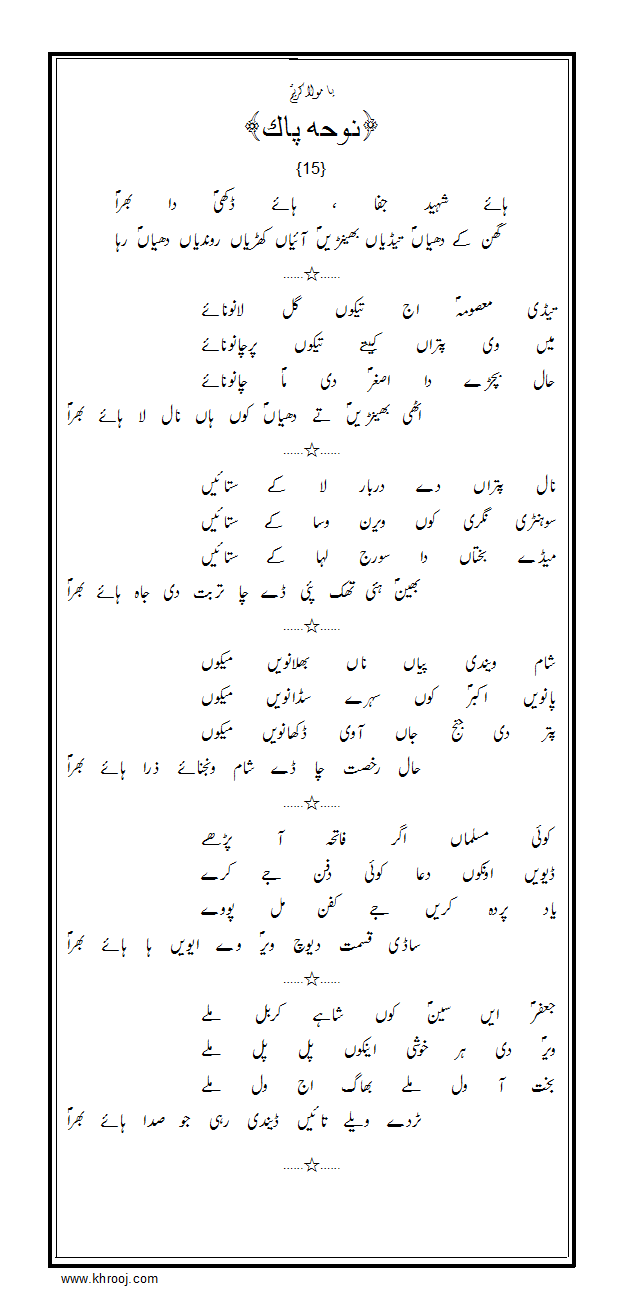 یا مولا کریمؑ
﴿نوحہ پاک﴾
{15}
ہائے شہید جفا ، ہائے ڈکھیؑ دا بھراؑ
گھن کے دھیاںؑ تیڈیاں بھینڑیںؑ آئیاں کھڑیاں روندیاں دھیاںؑ رہا
......☆......
تیڈی معصومہؑ اج تیکوں گل لانونائے
میں وی پتراں کیتے تیکوں پرچانونائے
حال بچڑے دا اصغرؑ دی ماؑ چانونائے
اٹھی بھینڑیںؑ تے دھیاںؑ کوں ہاں نال لا ہائے بھراؑ
......☆......
نال پتراں دے دربار لا کے ستائیں
سوہنڑی نگری کوں ویرن وسا کے ستائیں
میڈے بختاں دا سورج لہا کے ستائیں
بھینؑ ہئی تھک پئی ڈے چا تربت دی جاہ ہائے بھراؑ
......☆......
شام ویندی پیاں ناں بھلانویں میکوں
پانویں اکبرؑ کوں سہرے سڈانویں میکوں
پتر دی جنج جاں آوی ڈکھانویں میکوں
حال رخصت چا ڈے شام ونجنائے ذرا ہائے بھراؑ
......☆......
کوئی مسلماں اگر فاتحہ آ پڑھے
ڈیویں اونکوں دعا کوئی دفن جے کرے
یاد پردہ کریں جے کفن مل پووے
ساڈی قسمت دیوچ ویرؑ وے ایویں ہا ہائے بھراؑ
......☆......
جعفرؑ ایں سینؑ کوں شاہے کربل ملے
ویرؑ دی ہر خوشی اینکوں پل پل ملے
بخت آ ول ملے بھاگ اج ول ملے
ٹردے ویلے تائیں ڈیندی رہی جو صدا ہائے بھراؑ
......☆......
www.khrooj.com